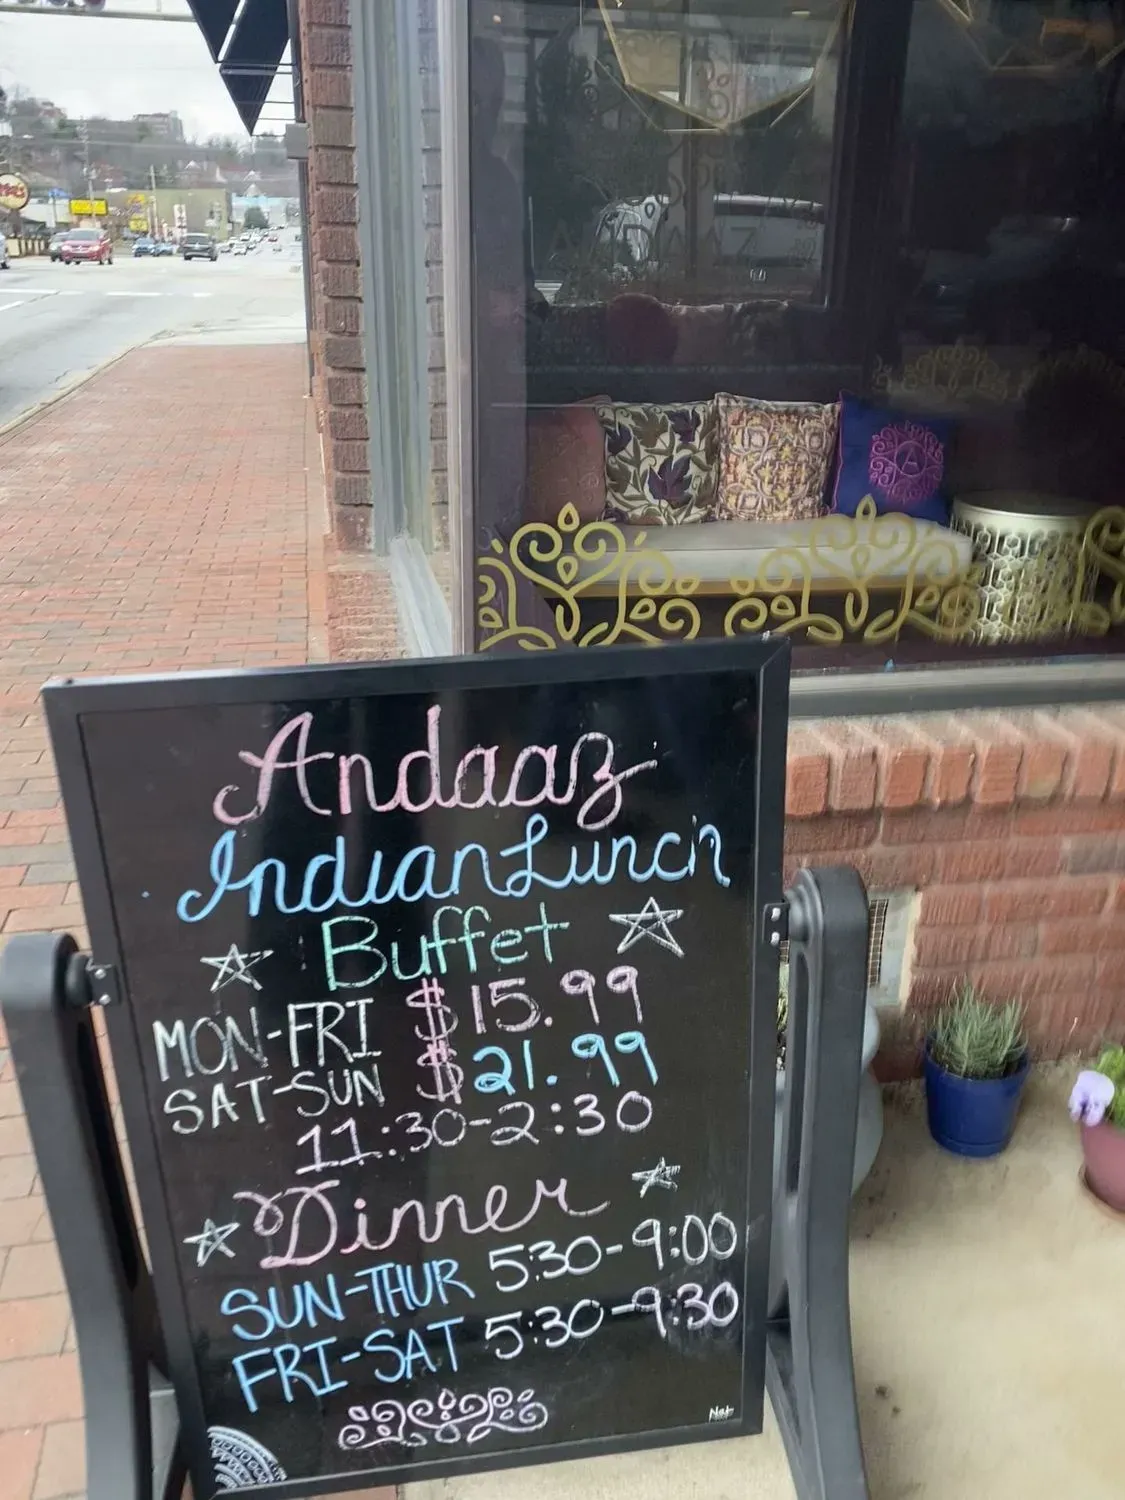 ANDAAZ
A
Andaaz
Indian Lunch
Buffet
MON-FRI $15.99
SAT-SUN $21.99
11:30-2:30
Dinner
SUN-THUR 5:30-9:00
FRI-SAT 5:30-9:30